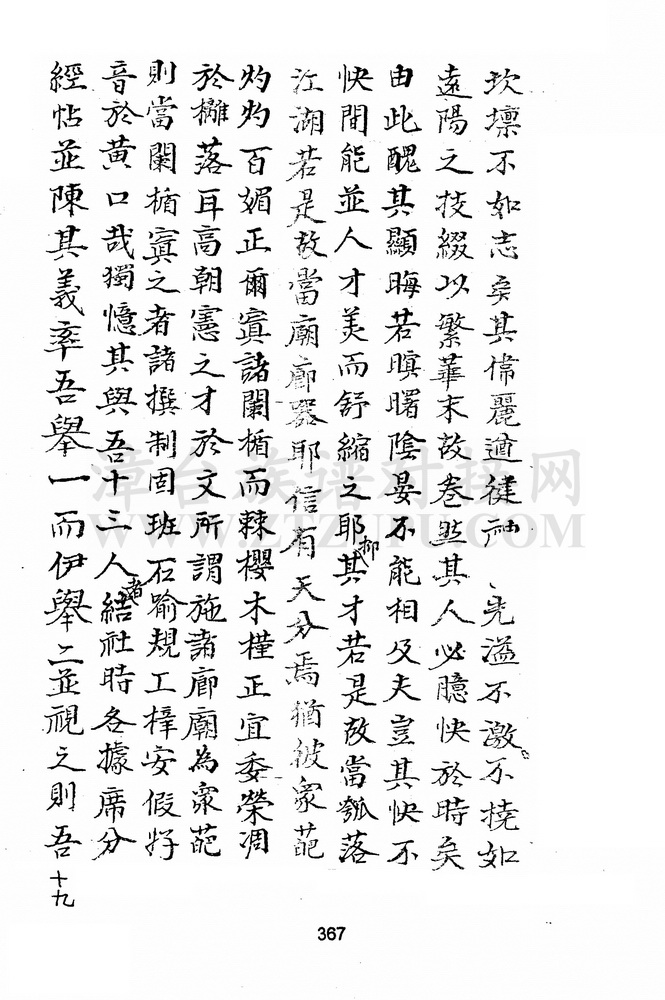 坎壈不如志矣其偉麗適徤神 先溢不激不撓如
遠陽之技綴以繁華末故卷點其人必臆快於時矣
由此醜其顯晦若暝曙陰晏不能相及夫豈其快不
快間能並人才美而舒縮之耶抑其才若是故當瓠落
江湖若是故當廟廊器耶信有天分焉猶彼衆葩
灼灼百媚正爾寘諸闌楯而棘櫻木槿正宜委榮凋
於欄落耳高朝憲之才於文所謂施諸廊廟為衆葩
則當闌楯寘之者諸撰制固班石喻規工梓安假好
音於黄口哉獨憶其與吾十三人者結社時各據席分
經帖並陳其義率吾舉一而伊舉二並視之則吾
十九
漳台族谱对接网
WWW.ZTZUPU.COM
367